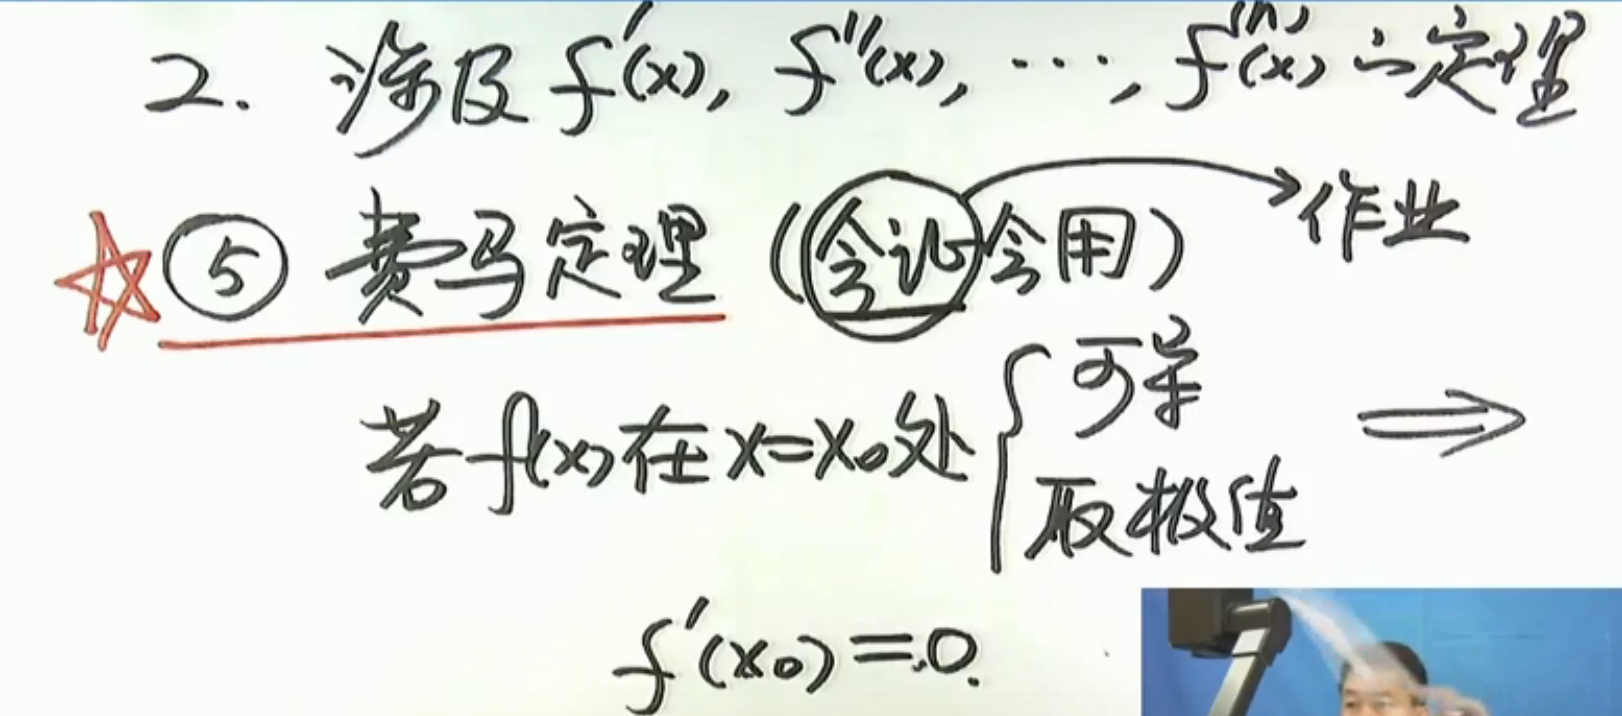 2. 涉及f'(x), f''(x), …, f⁽ⁿ⁾(x)的定理
⑤ 费马定理 (会证会用) → 作业
若f(x)在x=x₀处 { 可导 取极值 ⟹
f'(x₀)=0.